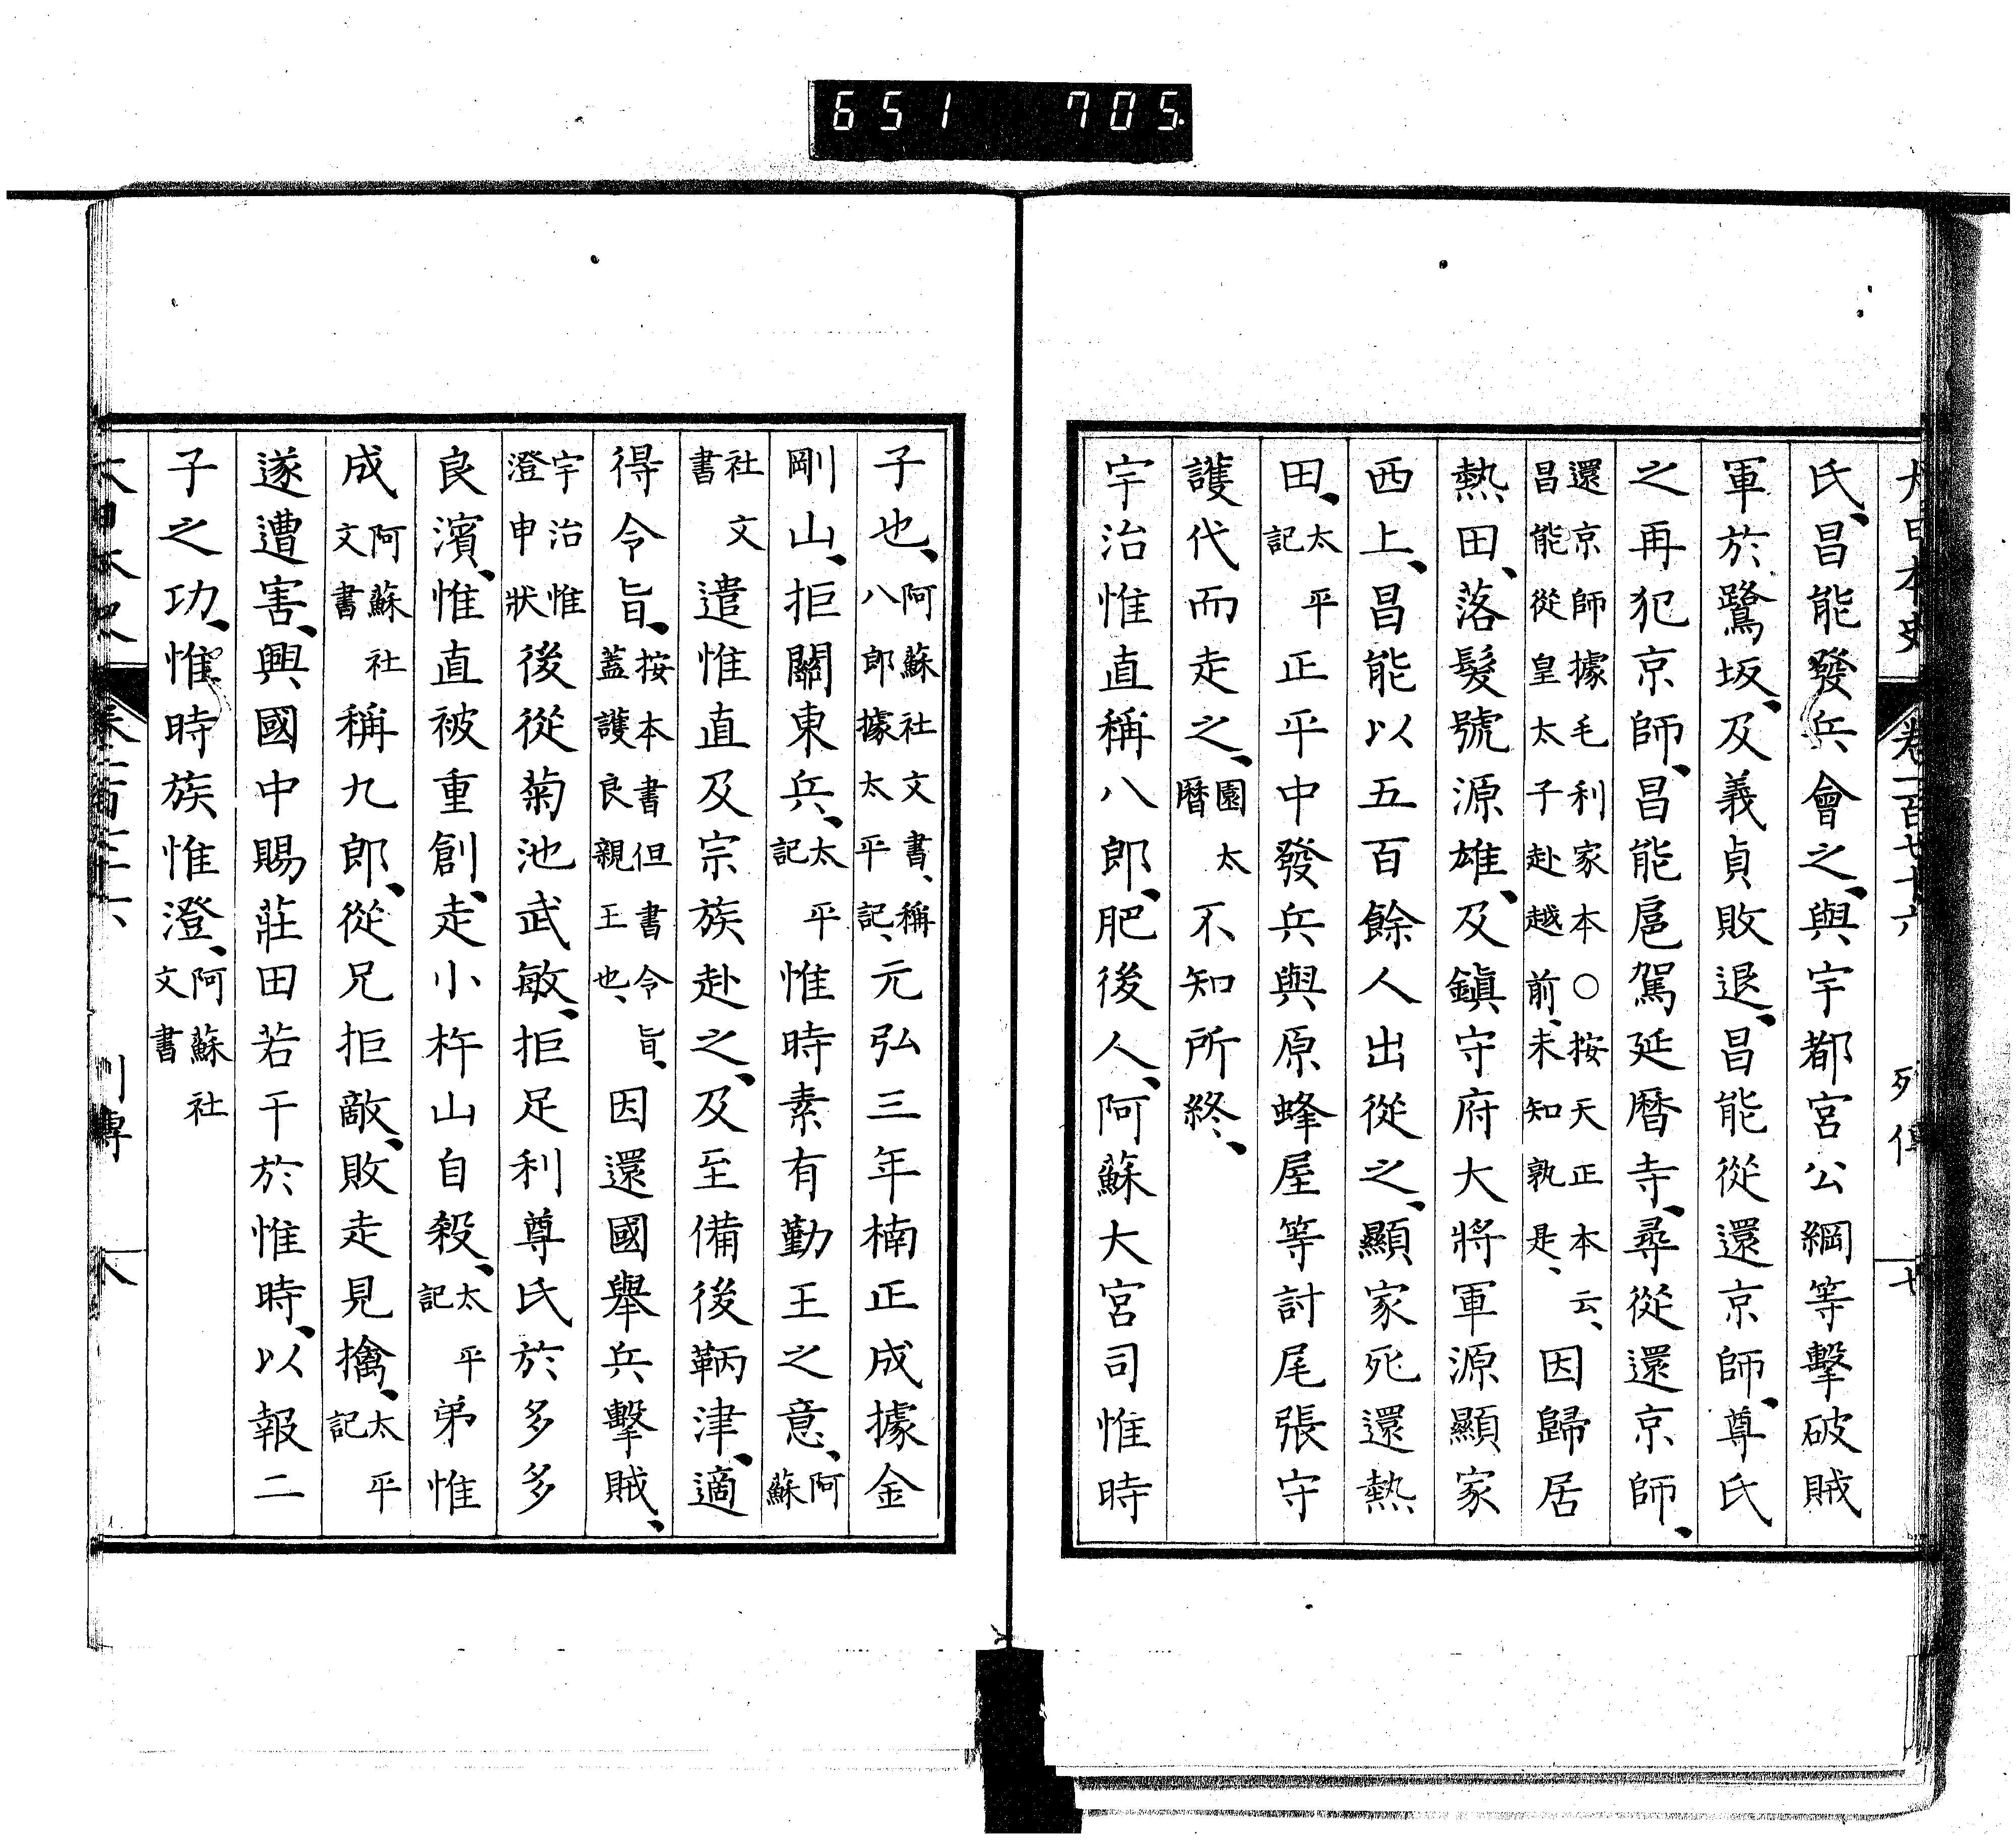 651 705
大日本史 卷一百七十六 列傳 七
氏、昌能發兵會之、與宇都宮公綱等擊破賊
軍於鷺坂、及義貞敗退、昌能從還京師、尊氏
之再犯京師、昌能扈駕延曆寺、尋從還京師、
還京師據毛利家本○按天正本云、昌能從皇太子赴越前、未知孰是、因歸居
熱田、落髮號源雄、及鎭守府大將軍源顯家
西上、昌能以五百餘人出從之、顯家死還熱
田、太平記正平中發兵與原蜂屋等討尾張守
護代而走之、園太曆不知所終、
宇治惟直稱八郎、肥後人、阿蘇大宮司惟時
子也、阿蘇社文書、稱八郎據太平記、元弘三年楠正成據金
剛山、拒關東兵、太平記惟時素有勤王之意、阿蘇
社文書遣惟直及宗族赴之、及至備後鞆津、適
得令旨、按本書書但書令旨、蓋護良親王也、因還國舉兵擊賊、
宇治惟澄申狀後從菊池武敏、拒足利尊氏於多多
良濱、惟直被重創、走小杵山自殺、太平記弟惟
成阿蘇社文書稱九郎、從兄拒敵、敗走見擒、太平記
遂遭害、興國中賜莊田若干於惟時、以報二
子之功、惟時族惟澄、阿蘇社文書